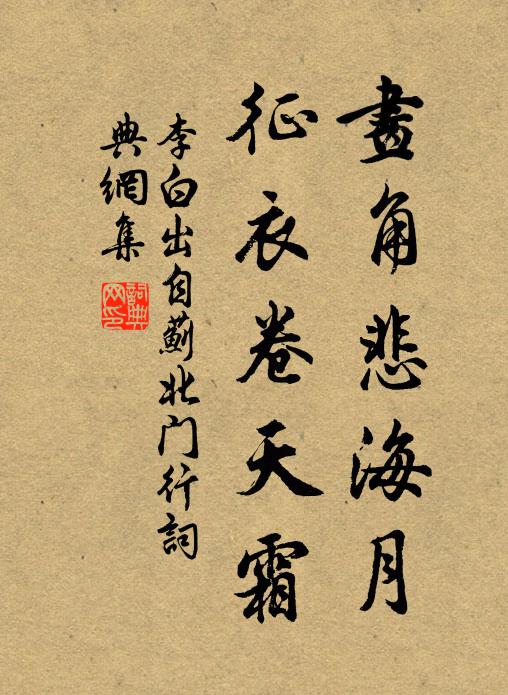 畫角悲海月
征衣卷天霜
李白出自薊北门行詞
典網集
詞典网印